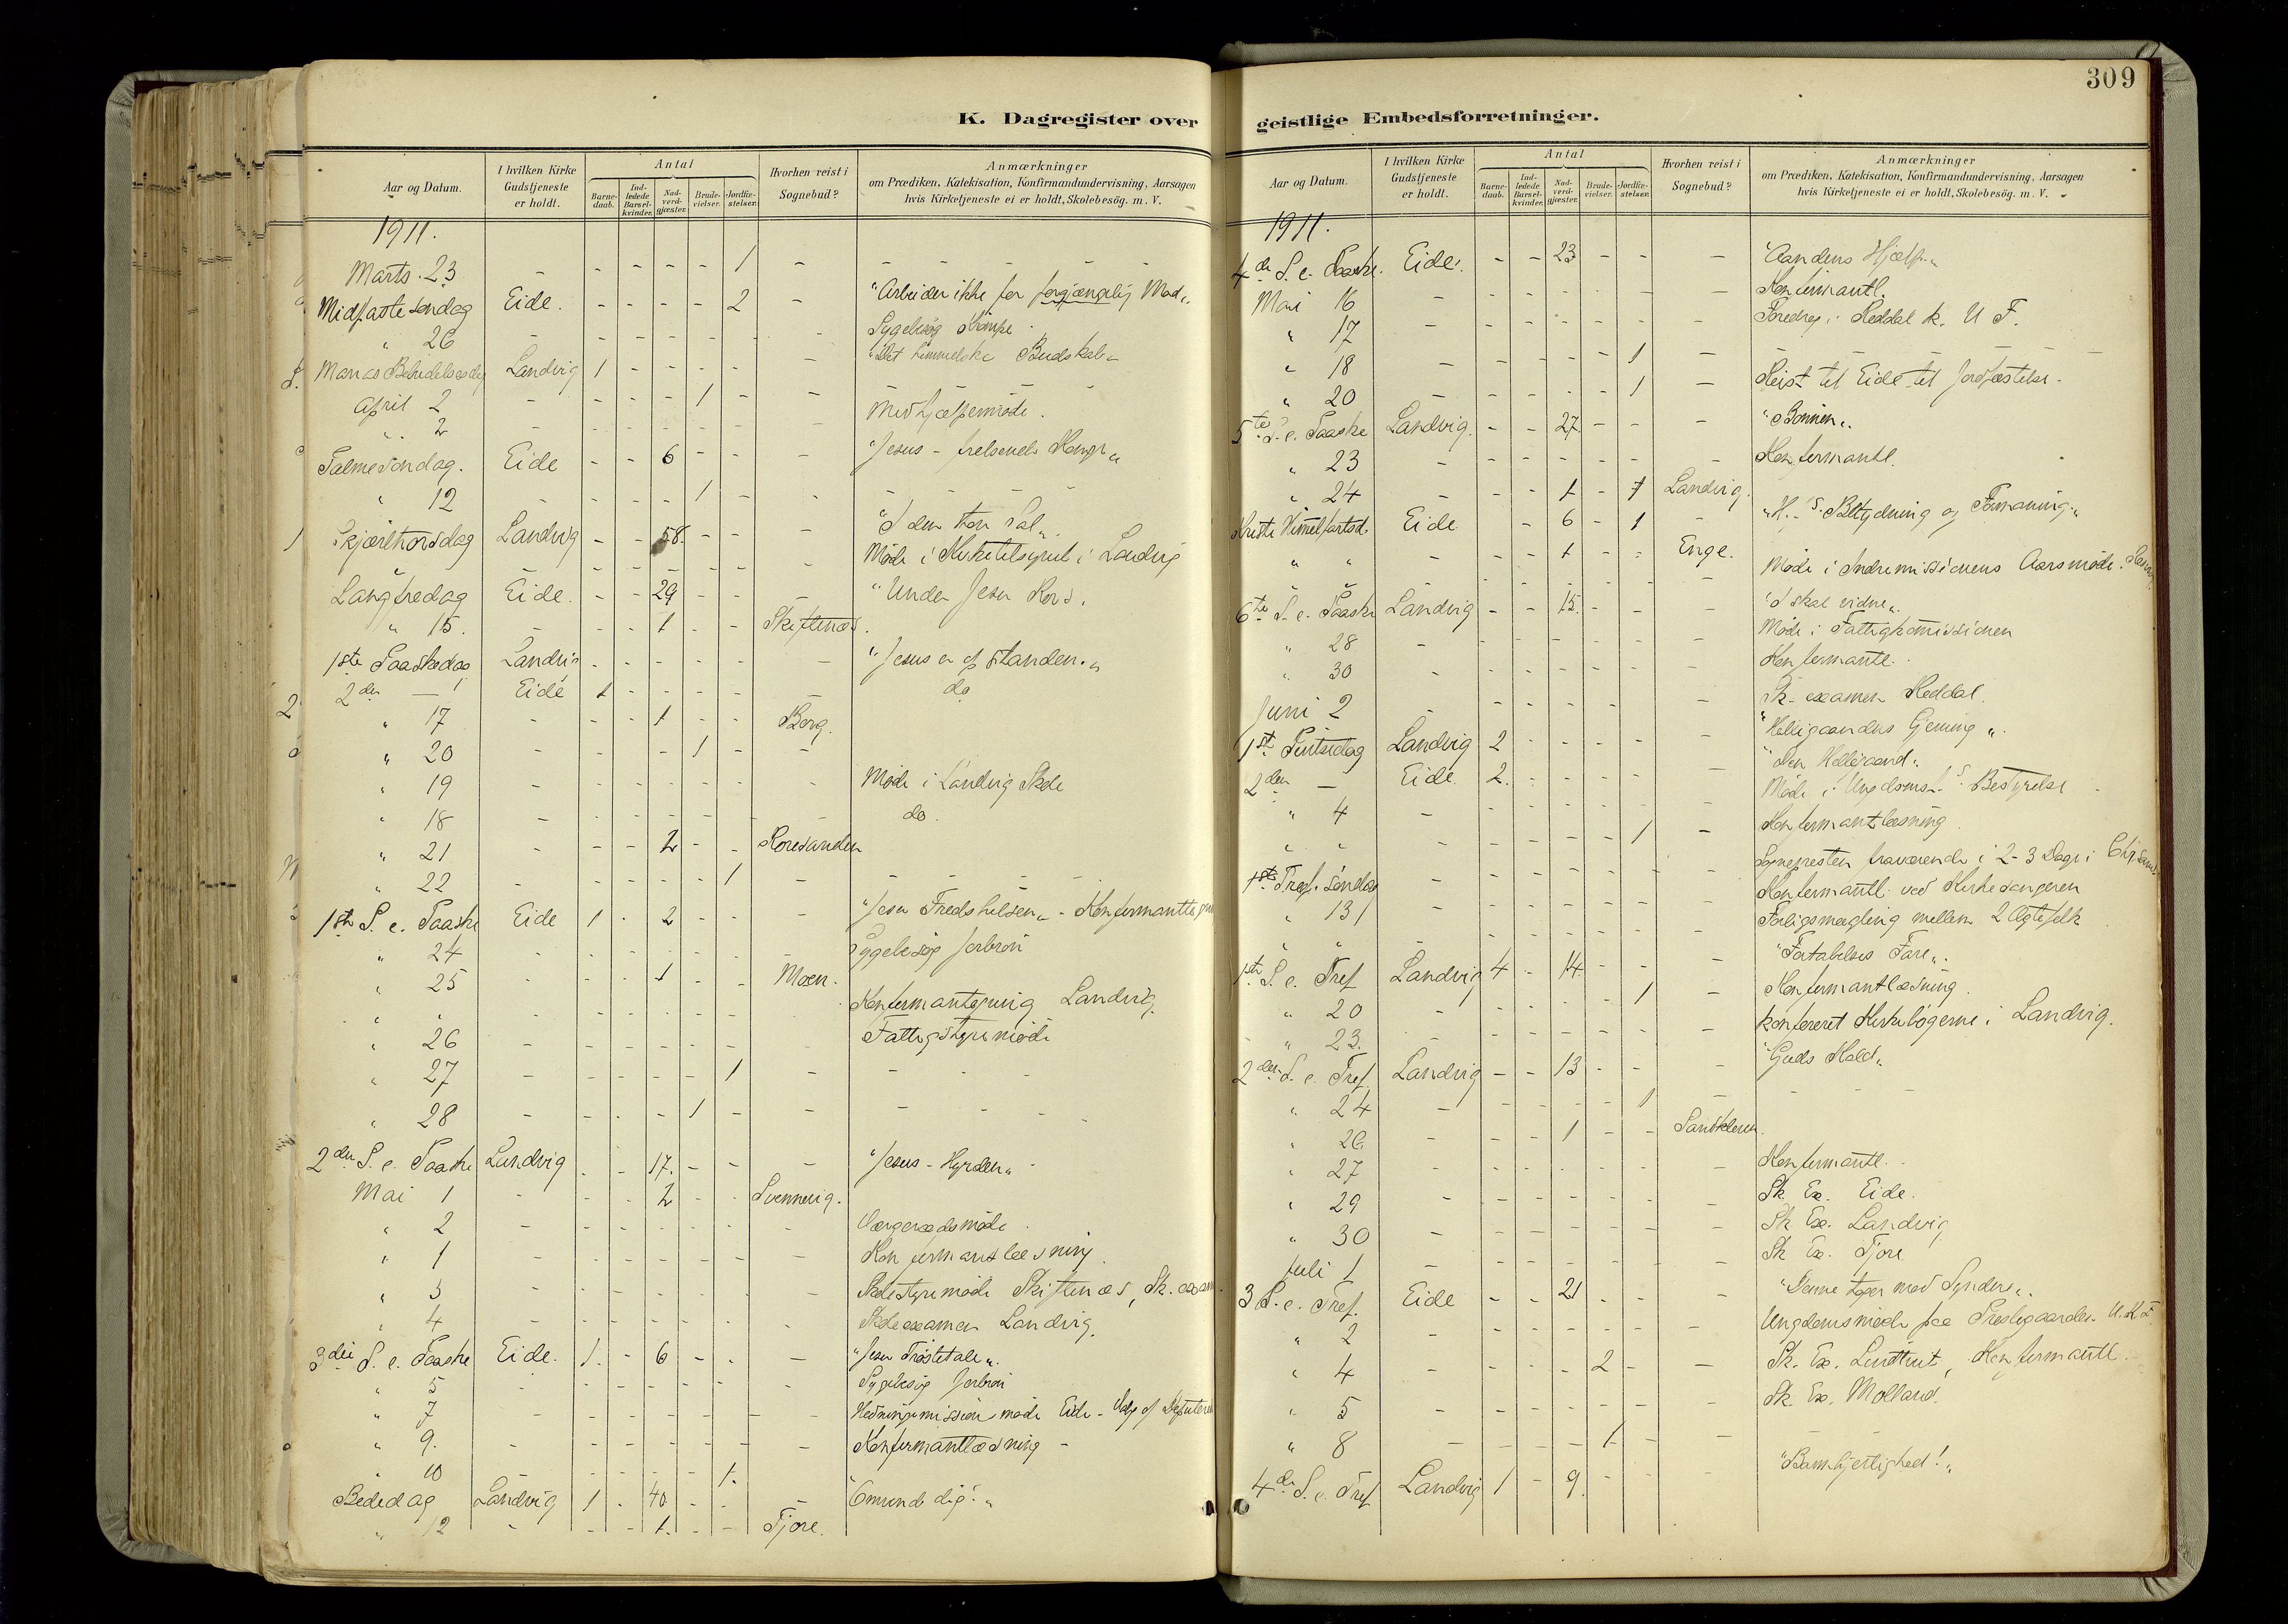 309
K. Dagregister over
Aar og Datum.
I hvilken Kirke Gudstjeneste er holdt.
Antal
Barne-daab.
Ind-ledede Barsel-kvinder.
Nad-verd-gjæster.
Brude-vielser.
Jordfæ-stelser.
Hvorhen reist i Sognebud?
Anmærkninger
om Prædiken, Katekisation, Konfirmandundervisning, Aarsagen
hvis Kirketjeneste ei er holdt, Skolebesög. m. V.
1911.
Marts 23 - - - - - 1 -
Midfaste søndag Eide. - - - - 2 - "Arbeider ikke for forgjængelig Mad"
" 26 - - - - - - Sygebesøg
Marias Bebudelsesdag Landvig 1 - - - - - "Det himmelske Budskab"
April 2 - - - - 1 - -
" 2 - - - - - - - Medhjælpermöde.
Palmesøndag. Eide - - 6 - - - "Jesus - frelsende Konge"
" 12 - - - - 1 - -
Skjærthorsdag Landvig - - 58. - - - "I den stor Sal"
Möde i Kirketilsynet i Landvig
Langfredag Eide. - - 29 - - - "Under Jesu Kors.
" 15. - - - 1 - - Skiftenæs.
1ste Paaskedag Landvig - - - - - - "Jesus er opstanden."
2den — Eide 1 - - - - - do
" 17 - - - 1 - - Berg.
" 20 - - - - 1 - -
" 19 - - - - - - - Möde i Landvig Skole
" 18 - - - - - - - do.
" 21 - - - 2 - - Roresanden
" 22 - - - - - 1 -
1ste S. e. Paaske Eide 1 - 2 - - - "Jesu Fredshilsen"
" 24 - - - - - Sygebesøg Jorbron
" 25 - - - 1 - - Moen.
" " - - - - - - Landvig.
" 26 - - - - - - - Fattigstyremöde
" 27 - - - - - 1 -
" 28 - - - - 1 - -
2den S. e. Paaske Landvig - - 17. - - - "Jesus - Hyrden"
Mai 1 - - - 2 - - Svennevig.
" 2 - - - - - - - Værgeraadsmöde
" 1 - - - - - - - Konfirmantlæsning
" 3 - - - - - - - Skolestyremöde Skiftenæs, Sk. exam
" 4 - - - - - - - Skoleexamen Landvig.
3die S. e. Paaske Eide. 1. - 6 - - - "Jesu Trøstetale".
" 5 - - - - - - - Sygebesög Jorbron
" 7 - - - - - - - Hedningemissionsmöde Eide - Valg af
" 9. - - - - - - - Konfirmantlæsning -
" 10 - - - - - 1.
Bededag Landvig 1 - 40 - - - "Omvende dig!"
" 12 - - - 1. - - Fjore.
geistlige Embedsforretninger.
Aar og Datum.
I hvilken Kirke Gudstjeneste er holdt.
Antal
Barne-daab.
Ind-ledede Barsel-kvinder.
Nad-verd-gjæster.
Brude-vielser.
Jordfæ-stelser.
Hvorhen reist i Sognebud?
Anmærkninger
om Prædiken, Katekisation, Konfirmandundervisning, Aarsagen
hvis Kirketjeneste ei er holdt, Skolebesög. m. V.
1911.
4de S. e. Paaske. Eide. - - 23 - - - "Aandens Hjælp"
Mai 16 - - - - - - - Konfirmantl.
" 17 - - - - - - - Foredrag i Reddal k. U F.
" 18 - - - - - 1 -
" 20 - - - - 1 - Reist til Eide til Jordfæstelse.
5te S. e. Paaske Landvig. - - 27 - - - "Bønnen".
" 23 - - - - - - - Konfirmantl.
" 24 - - - 1 - 1 Landvig.
Kristi Himmelfartsd. Eide - 6 - 1 - Betydning og Formaning."
" " - - - 1 - - Enge.
Möde i Indremissionens Aarsmöde.
6te S. e. Paaske Landvig - - 15. - - - "I skal vidne".
" 28 - - - - - - - Möde i Fattigkomissionen
" 30 - - - - - - - Konfirmantl.
Juni 2 - - - - - - - Sk. examen Reddal
1ste Pintsedag Landvig 2 - - - - - "Helligaandens Gjerning".
2den — Eide. 2. - - - - - "Den Helligaand".
" 4 - - - - - - - Möde i Bestyrelse
" " - - - - - 1 - Konfirmantlæsning
1ste Tref. söndag - - - - - - - Sognepresten fraværende i 2-3 Dage i
" 13 - - - - - - - Konfirmantl. ved Kirkesangeren
Forligsmægling mellem 2 Ægtefolk
1ste S. e. Tref Landvig 4 - 14. - - - "Fortabelses Fare".
" 20 - - - - - 1 - Konfirmantlæsning.
" 23. - - - - - - - Konfereret Kirkebøgerne i Landvig.
2den S. e. Tref. Landvig - - 13 - - - "Guds Kald"
" 24 - - - - - 1 -
" 26 - - - 1 - -
" 27 - - - - - - - Konfirmantl.
" 29 - - - - - - - Sk. Ex. Eide.
" 30 - - - - - - - Sk Ex. Landvig
Juli 1 - - - - - - - Sk Ex. Fjore
3 S. e. Tref. Eide - - 21 - - - "Denne tager mod Syndere".
" 2 - - - - - - - Ungdomsmöde paa Prestegaarden. U.K.F.
" 4 - - - - 2 - - Sk. Ex. , Konfirmantl.
" 5 - - - - - - - Sk Ex. Molland.
" 8 - - - - 1 - -
4de S. e. Tref Landvig 1 - 9. - - - "Barmhjertighed!"